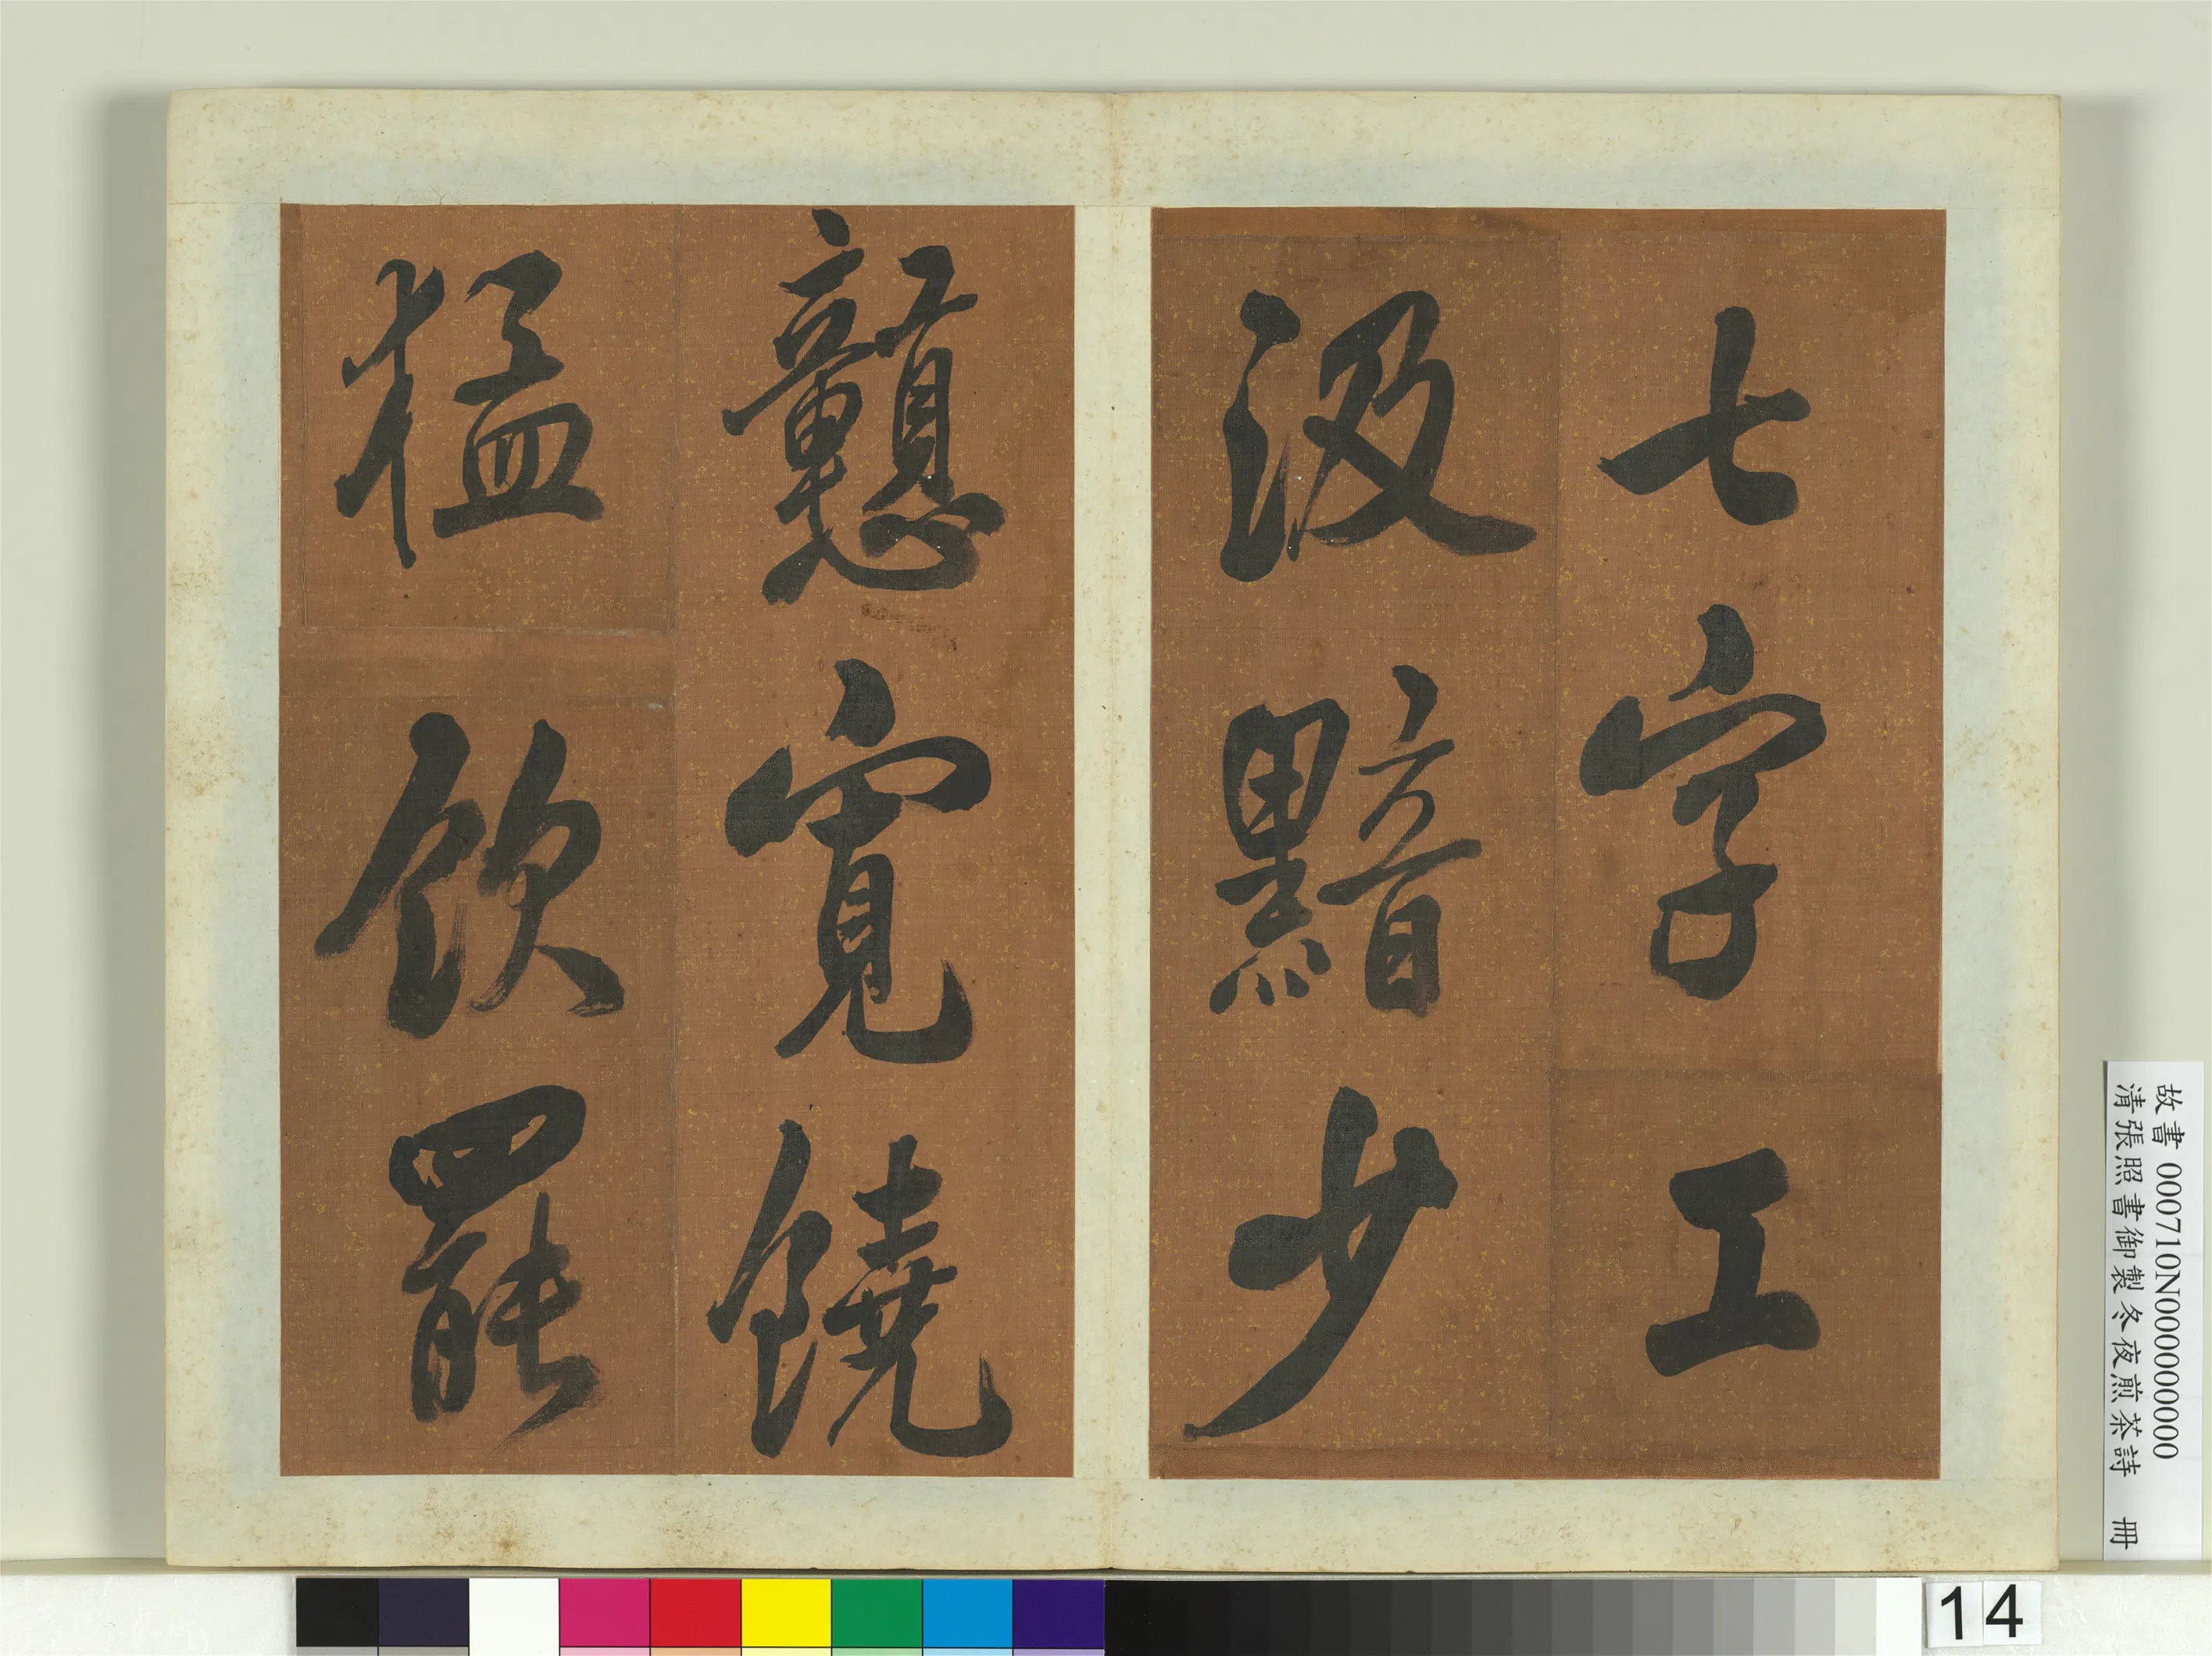 七字工
汲黯少
戇寬饒
猛飲罷
故書 000710N000000000
清張照書御製冬夜煎茶詩 冊
14